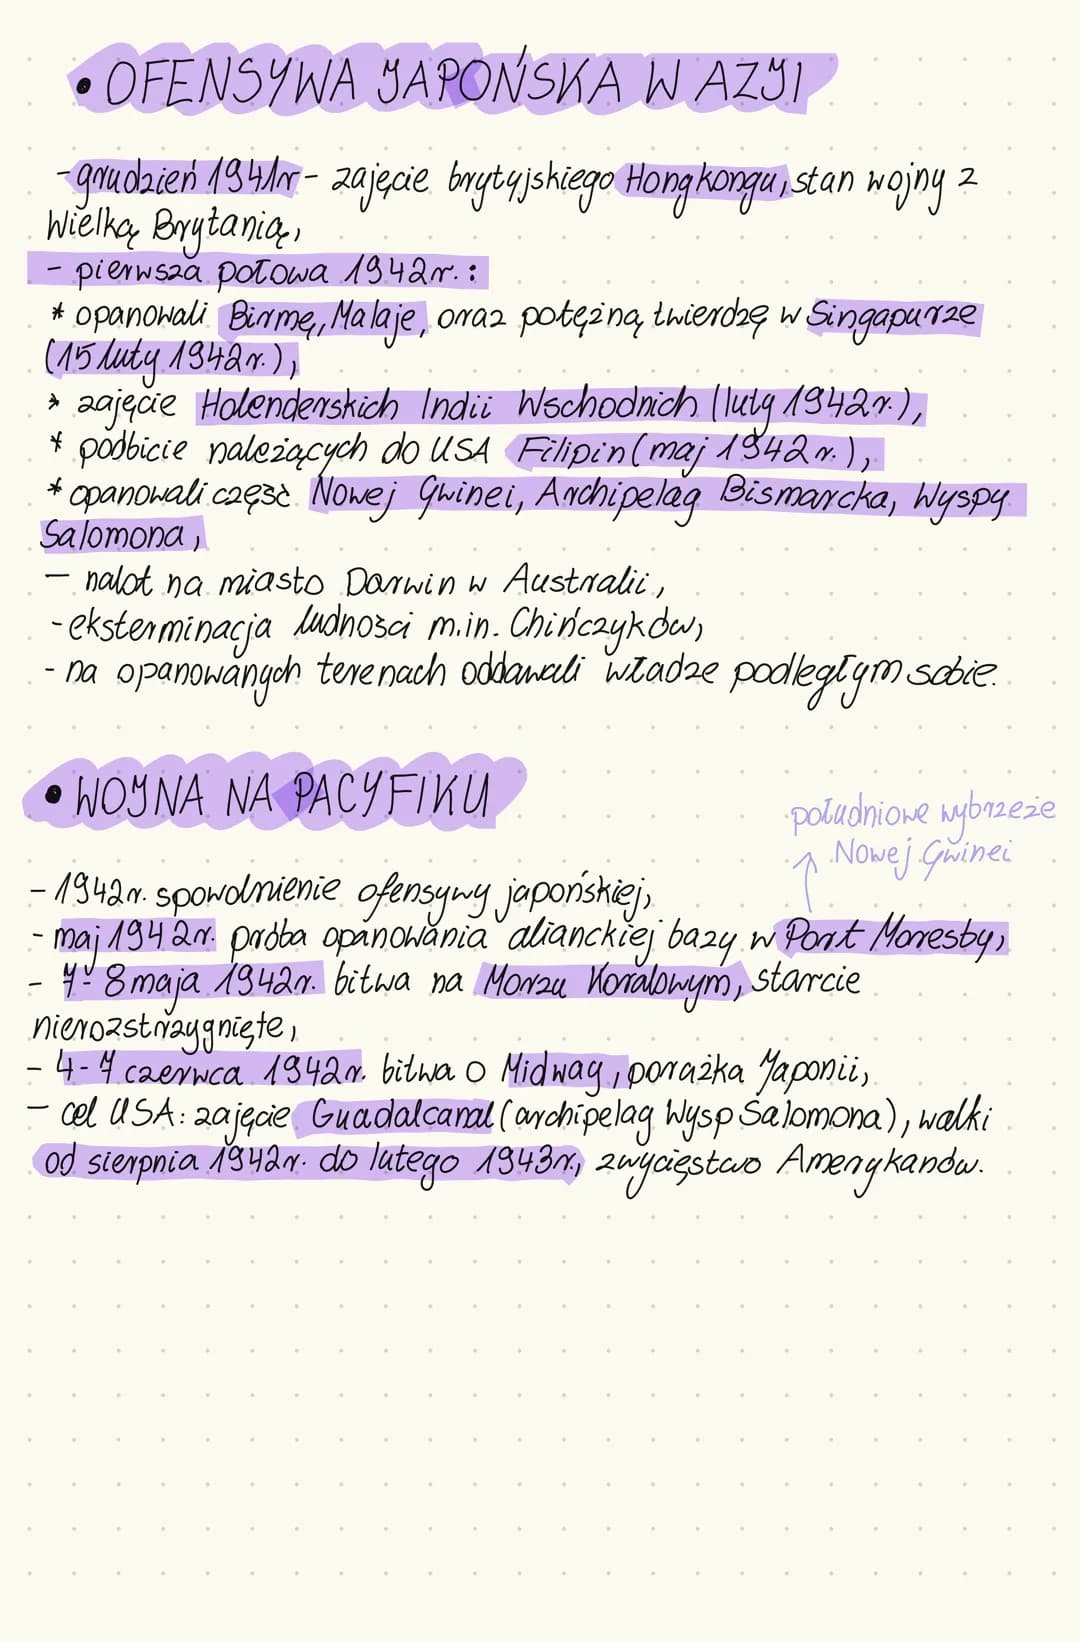 • OFENSYWA JAPOŃSKA W AZJI
- grudzień 1941r - zajęcie brytyjskiego Hongkongu, stan wojny z
Wielką Brytanią,
- pierwsza połowa 1942r. :
* opanowali Birmę, Malaje, oraz potężną twierdzę w Singapurze
(15 luty 1942r.),
* zajęcie Holenderskich Indii Wschodnich (luty 1942r.),
* podbicie należących do USA Filipin (maj 1942r.),
* opanowali część Nowej Gwinei, Archipelag Bismarcka, Wyspy
Salomona,
- nalot na miasto Darwin w Australii,
- eksterminacja ludności m.in. Chińczyków,
- na opanowanych terenach oddawali władze podległym sobie.
• WOJNA NA PACYFIKU
południowe wybrzeże
↑ Nowej Gwinei
- 1942r. spowolnienie ofensywy japońskiej,
- maj 1942r. próba opanowania alianckiej bazy w Port Moresby,
- 7-8 maja 1942r. bitwa na Morzu Koralowym, starcie
nierozstrzygnięte,
- 4-7 czerwca 1942r. bitwa o Midway, porażka Japonii,
- cel USA: zajęcie Guadalcanal (archipelag Wysp Salomona), walki
od sierpnia 1942r. do lutego 1943r., zwycięstwo Amerykanów.